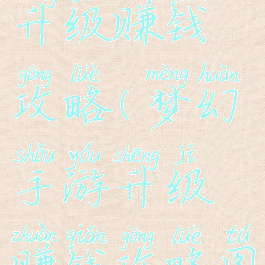 升级赚钱
gōng lüè mèng huàn
攻略(梦幻
shǒu yóu shēng jí
手游升级
zhuàn qián gōng lüè tú
赚钱攻略图